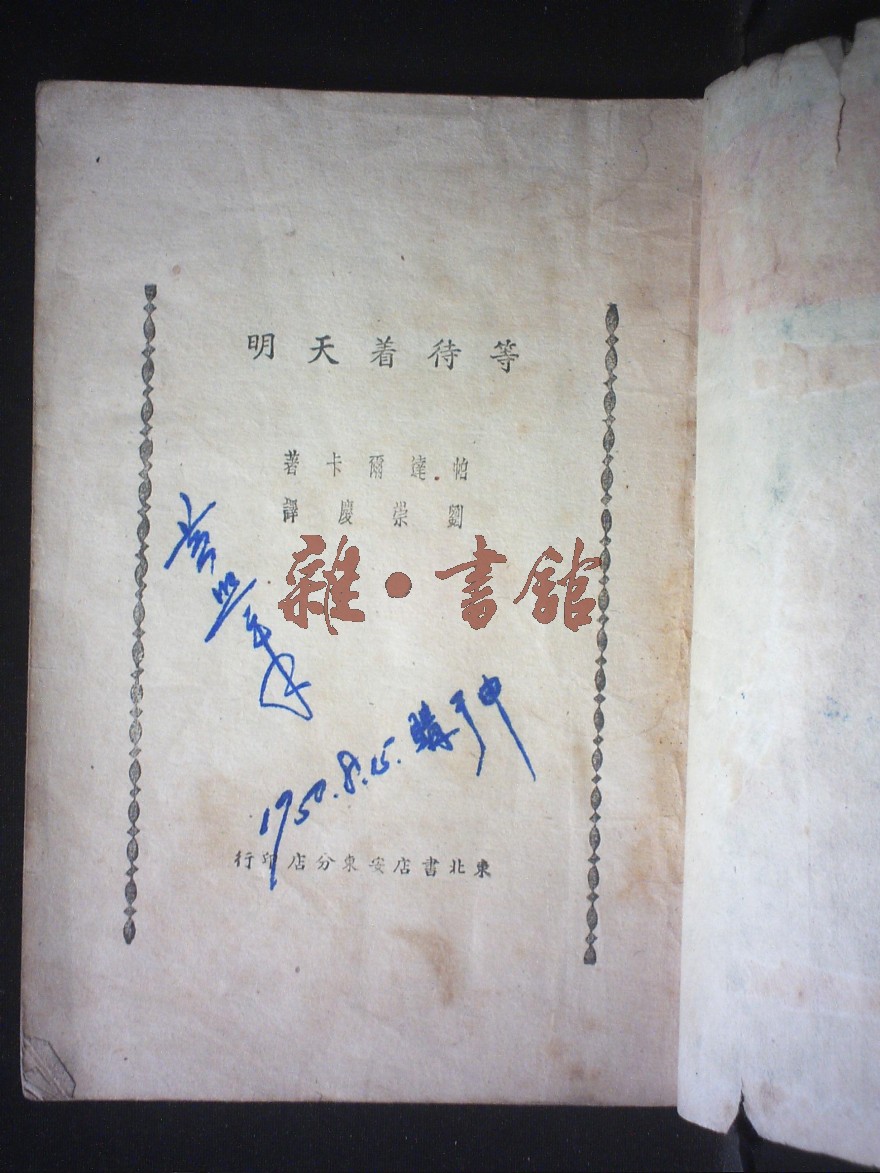 等待着天明
帕達爾卡著
劉崇慶譯
雜·書館
1950.8.15.購于
東北書店安東分店印行